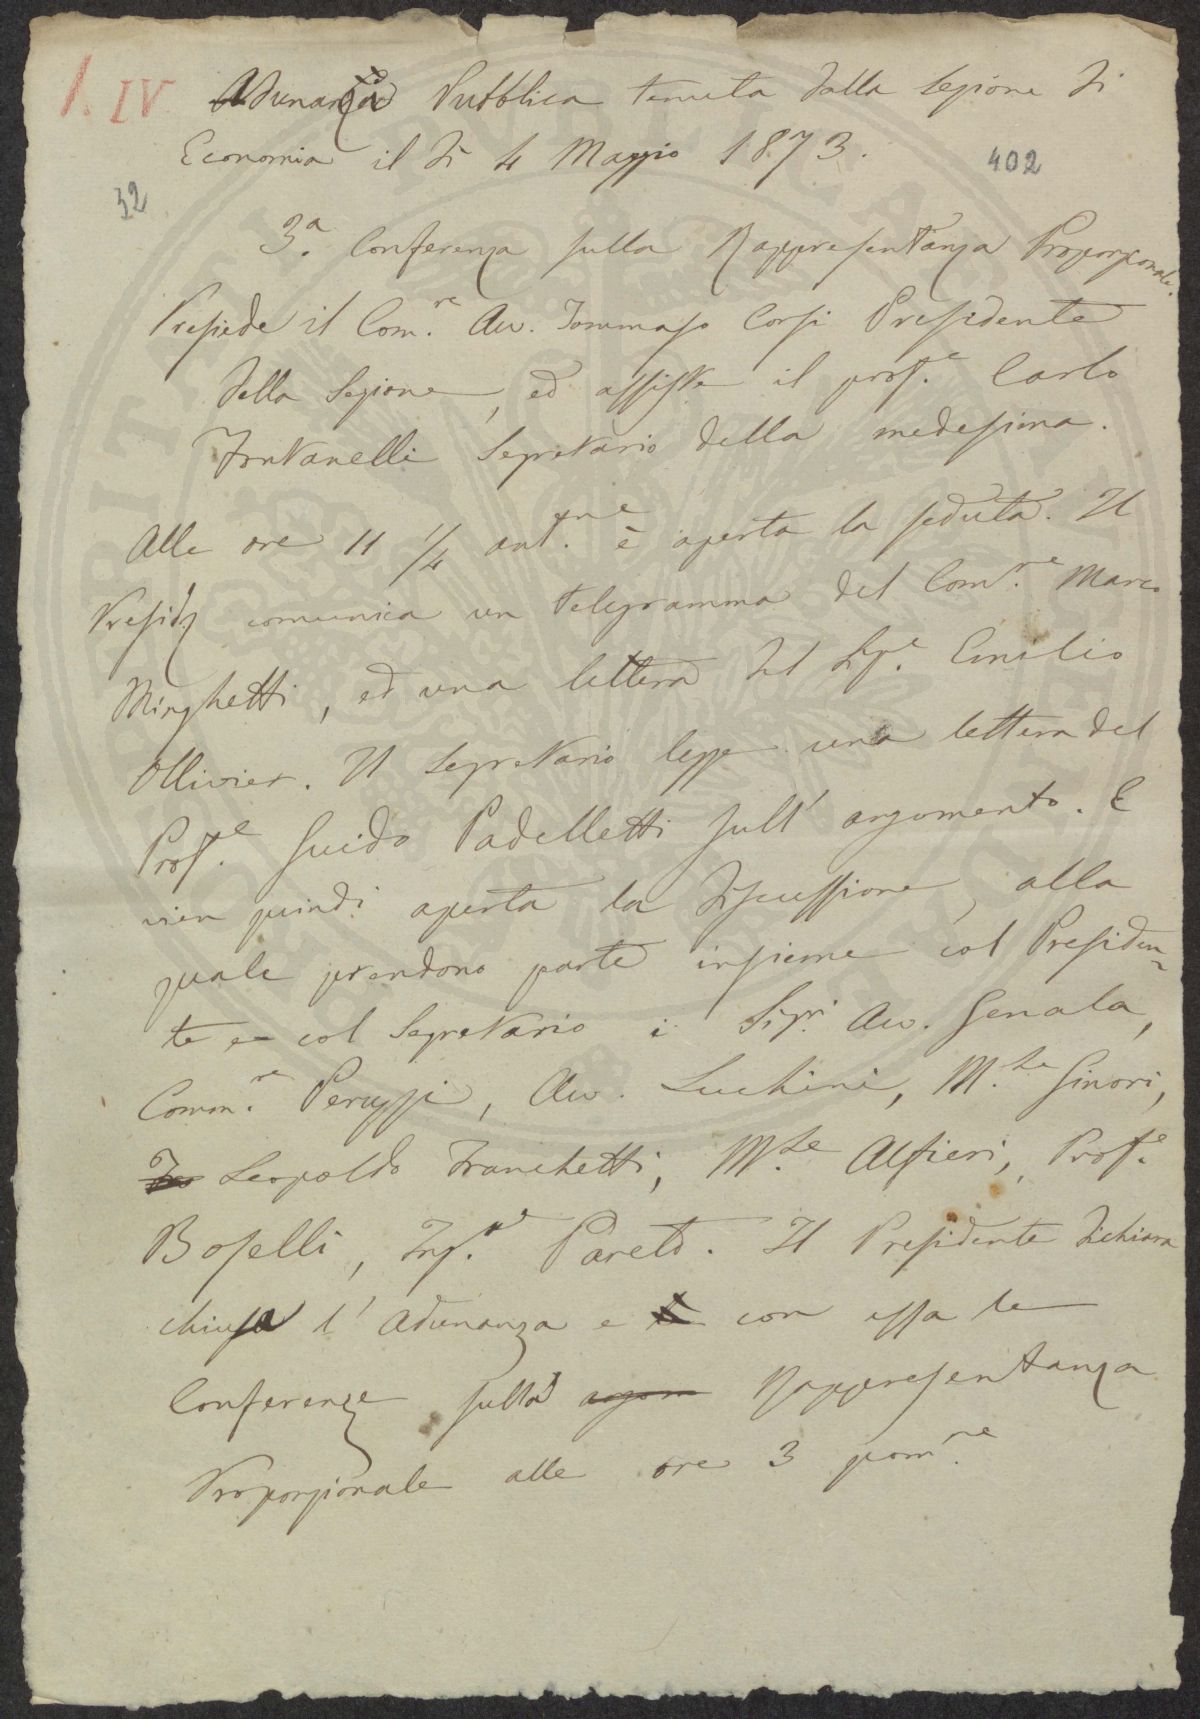 1. IV Adunanza Pubblica tenuta dalla Sezione di
Economia il dì 4 Maggio 1873.
402
32
3.ª Conferenza sulla Rappresentanza Proporzionale.
Presiede il Com.re Avv. Tommaso Corsi Presidente
della Sezione, ed assiste il prof.e Carlo
Fontanelli Segretario della medesima.
Alle ore 11 1/4 ant.ne è aperta la seduta. Il
Presid. comunica un telegramma del Com.re Marco
Minghetti, ed una lettera del Sig.e Emilio
Ollivier. Il Segretario legge una lettera del
Prof.e Guido Padelletti sull' argomento. E
vien quindi aperta la discussione, alla
quale prendono parte insieme col Presiden-
te e col Segretario i Sigri. Avv. Genala,
Comm.re Peruzzi, Avv. Luchini, M.se Ginori,
Leopoldo Franchetti, M.se Alfieri, Prof.e
Boselli, Ing.re Pareto. Il Presidente dichiara
chiusa l' adunanza e con essa le
Conferenze sulla Rappresentanza
Proporzionale alle ore 3 pom.ne